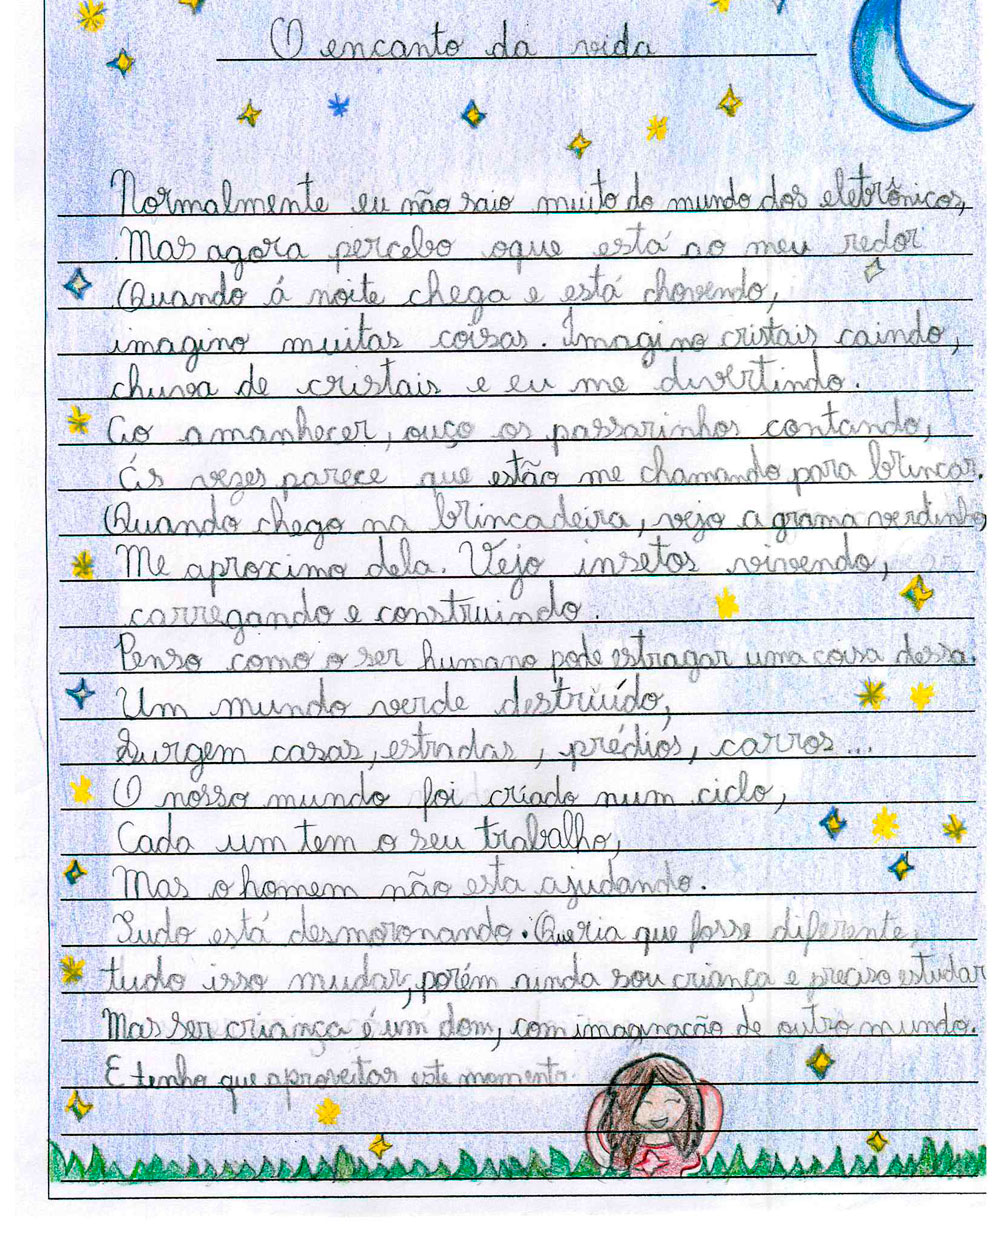 O encanto da vida
Normalmente eu não saio muito do mundo dos eletrônicos,
Mas agora percebo oque está ao meu redor.
Quando á noite chega e está chovendo,
imagino muitas coisas. Imagino cristais caindo,
chuva de cristais e eu me divertindo.
Ao amanhecer, ouço os passarinhos contando,
Ás vezes parece que estão me chamando para brincar.
Quando chego na brincadeira, vejo a grama verdinha,
Me aproximo dela. Vejo insetos vivendo,
carregando e construindo.
Penso como o ser humano pode estragar uma coisa dessa.
Um mundo verde destruído,
Surgem casas, estradas, prédios, carros...
O nosso mundo foi criado num ciclo,
Cada um tem o seu trabalho,
Mas o homem não esta ajudando.
Tudo está desmoronando. Queria que fosse diferente,
tudo isso mudar, porém ainda sou criança e preciso estudar
Mas ser criança é um dom, com imaginação de outro mundo.
E tenho que aproveitar este momento.